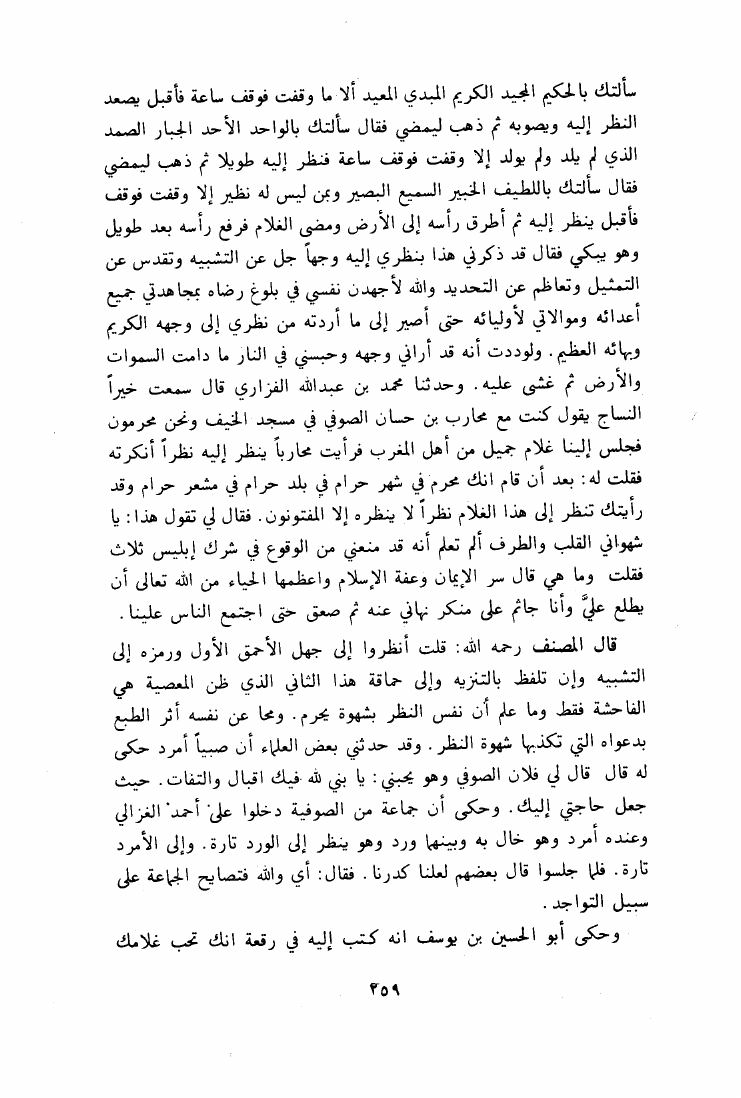 سألتك بالحكيم المجيد الكريم المبدي المعيد ألا ما وقفت فوقف ساعة فأقبل يصعد
النظر إليه ويصوبه ثم ذهب ليمضي فقال سألتك بالواحد الأحد الجبار الصمد
الذي لم يلد ولم يولد إلا وقفت فوقف ساعة فنظر إليه طويلا ثم ذهب ليمضي
فقال سألتك باللطيف الخبير السميع البصير وبمن ليس له نظير إلا وقفت فوقف
فأقبل ينظر إليه ثم أطرق رأسه إلى الأرض ومضى الغلام فرفع رأسه بعد طويل
وهو يبكي فقال قد ذكرني هذا بنظري إليه وجهاً جل عن التشبيه وتقدس عن
التمثيل وتعاظم عن التحديد والله لأجهدن نفسي في بلوغ رضاه بمجاهدتي جميع
أعدائه وموالاتي لأوليائه حتى أصير إلى ما أردته من نظري إلى وجهه الكريم
وبهائه العظيم. ولوددت أنه قد أراني وجهه وحبسني في النار ما دامت السموات
والأرض ثم غشى عليه. وحدثنا محمد بن عبدالله الفزاري قال سمعت خيراً
النساج يقول كنت مع محارب بن حسان الصوفي في مسجد الخيف ونحن محرمون
فجلس إلينا غلام جميل من أهل المغرب فرأيت محارباً ينظر إليه نظراً أنكرته
فقلت له: بعد أن قام انك محرم في شهر حرام في بلد حرام في مشعر حرام وقد
رأيتك تنظر إلى هذا الغلام نظراً لا ينظره إلا المفتونون. فقال لي تقول هذا: يا
شهواني القلب والطرف ألم تعلم أنه قد منعني من الوقوع في شرك إبليس ثلاث
فقلت وما هي قال سر الإيمان وعفة الإسلام واعظمها الحياء من الله تعالى أن
يطلع عليَّ وأنا جاثم على منكر نهاني عنه ثم صعق حتى اجتمع الناس علينا.
قال المصنف رحمه الله: قلت أنظروا إلى جهل الأحمق الأول ورمزه إلى
التشبيه وإن تلفظ بالتنزيه وإلى حماقة هذا الثاني الذي ظن المعصية هي
الفاحشة فقط وما علم أن نفس النظر بشهوة يحرم. ومحا عن نفسه أثر الطبع
بدعواه التي تكذبها شهوة النظر. وقد حدثني بعض العلماء أن صبياً أمرد حكى
له قال قال لي فلان الصوفي وهو يحبني: يا بني لله فيك اقبال والتفات. حيث
جعل حاجتي إليك. وحكى أن جماعة من الصوفية دخلوا على أحمد الغزالي
وعنده أمرد وهو خال به وبينهما ورد وهو ينظر إلى الورد تارة. وإلى الأمرد
تارة. فلما جلسوا قال بعضهم لعلنا كدرنا. فقال: أي والله فتصايح الجماعة على
سبيل التواجد.
وحكى أبو الحسين بن يوسف انه كتب إليه في رقعة انك تحب غلامك
٢٥٩